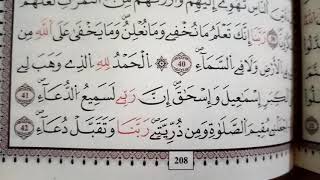 النَّاسِ تَهْوِي إِلَيْهِمْ وَارْزُقْهُم مِّنَ الثَّمَرَٰتِ لَعَلَّهُمْ
رَبَّنَا إِنَّكَ تَعْلَمُ مَا نُخْفِي وَمَا نُعْلِنُ وَمَا يَخْفَىٰ عَلَى اللَّهِ مِن
فِي الْأَرْضِ وَلَا فِي السَّمَاءِ 40 الْحَمْدُ لِلَّهِ الَّذِي وَهَبَ لِي
الْكِبَرِ إِسْمَٰعِيلَ وَإِسْحَٰقَ إِنَّ رَبِّي لَسَمِيعُ الدُّعَاءِ 41
مُقِيمَ الصَّلَوٰةِ وَمِن ذُرِّيَّتِي رَبَّنَا وَتَقَبَّلْ دُعَاءِ 42
208